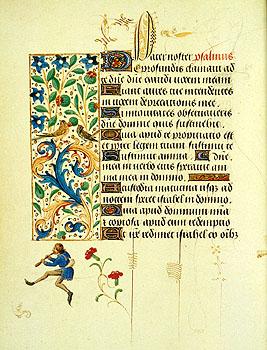 Pater noster psalmus
De profundis clamavi ad
te dñe dñe exaudi vocem meam
Fiant aures tue intendentes
in vocem deprecationis mee.
Si iniquitates observaveris
dñe domine quis sustinebit
Quia apud te propitiatio est
et propter legem tuam sustinui te
dñe Sustinuit anima
mea in verbo eius speravit ani
ma mea in domino.
A custodia matutina usq ad
noctem speret israhel in domino
Quia apud dominum mia
et copiosa apud eum redemptio
Et ipse redimet israhel ex oibz